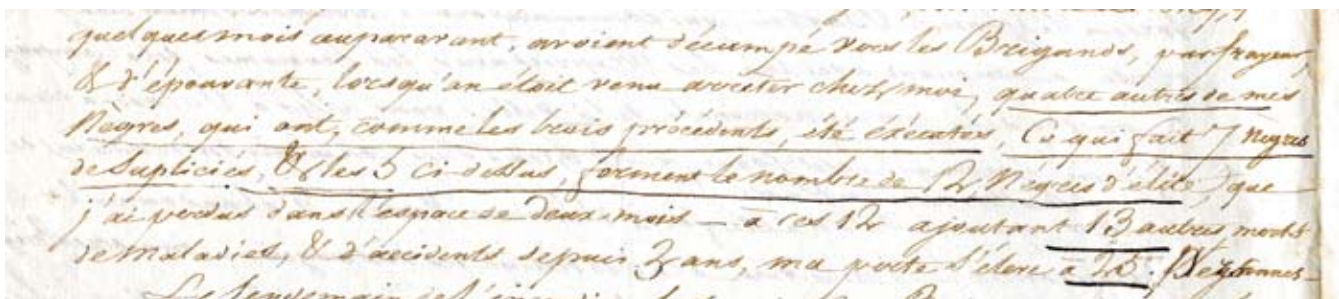 quelques mois auparavant, avoient décampé vers les Brigands, par frayeur,
& d'épouvante, lorsqu'on étoit venu arreter chez moi, quatre autres de mes
Nègres, qui ont, comme les trois précedents, été éxécutés, Ce qui fait 7 Negres
de Supliciés, & les 5 ci-dessus, forment le nombre de 12 Négres d'élite, que
j'ai perdus dans l'espace de deux mois — à ces 12 ajoutant 13 autres morts
de maladies, & d'accidents depuis 3 ans, ma perte s'élève à 25.
Le lendemain de